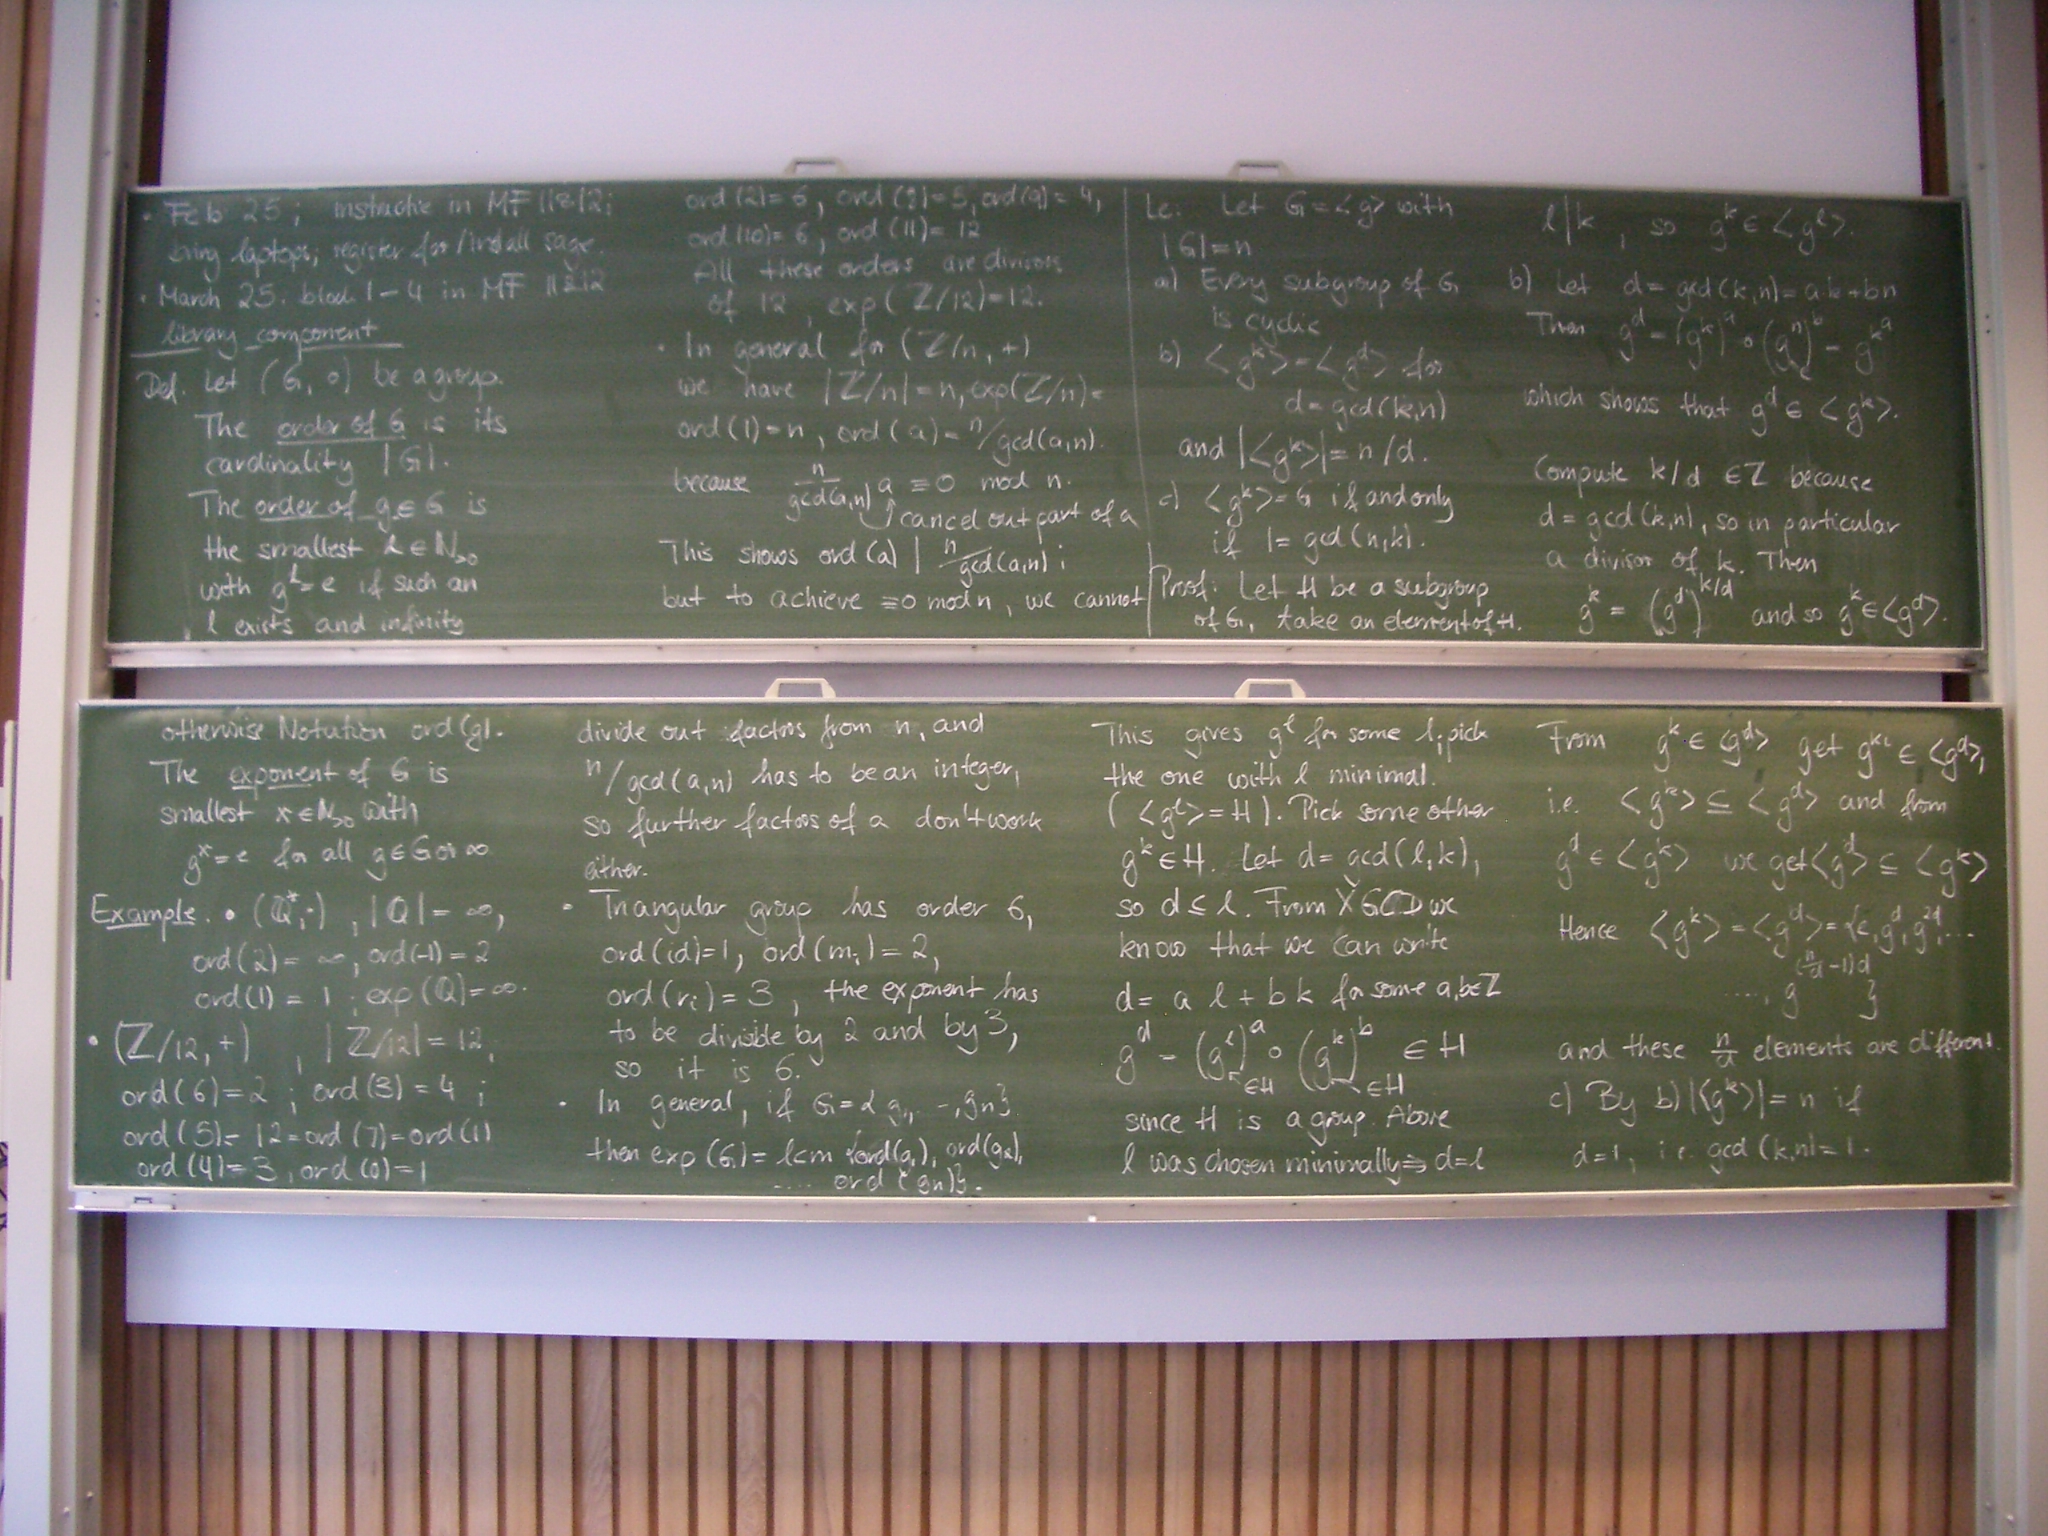 • Feb 25; instructie in MF 11&12;
bring laptops; register for/install sage.
• March 25. block 1-4 in MF 11&12
library component
Def. Let (G, ∘) be a group.
The order of G is its
cardinality |G|.
The order of g ∈ G is
the smallest l ∈ N>0
with g^l = e if such an
l exists and infinity
otherwise Notation ord(g).
The exponent of G is
smallest x ∈ N>0 with
g^x = e for all g ∈ G or ∞
Example. • (Q*, ·), |Q| = ∞,
ord(2) = ∞, ord(-1) = 2
ord(1) = 1; exp(Q) = ∞.
• (Z/12, +), |Z/12| = 12,
ord(6) = 2; ord(3) = 4;
ord(5) = 12 = ord(7) = ord(1)
ord(4) = 3, ord(0) = 1
ord(2) = 6, ord(8) = 3, ord(9) = 4,
ord(10) = 6, ord(11) = 12
All these orders are divisors
of 12, exp(Z/12) = 12.
• In general for (Z/n, +)
we have |Z/n| = n, exp(Z/n) =
ord(1) = n, ord(a) = n/gcd(a,n).
because n/gcd(a,n) a ≡ 0 mod n.
cancel out part of a
This shows ord(a) | n/gcd(a,n);
but to achieve ≡ 0 mod n, we cannot
divide out factors from n, and
n/gcd(a,n) has to be an integer,
so further factors of a don't work
either.
• Triangular group has order 6,
ord(id) = 1, ord(mi) = 2,
ord(ri) = 3, the exponent has
to be divisible by 2 and by 3,
so it is 6.
• In general, if G = {g1, ..., gn}
then exp(G) = lcm {ord(g1), ord(g2),
.... ord(gn)}.
Le: Let G = <g> with
|G| = n
a) Every subgroup of G
is cyclic
b) <g^k> = <g^d> for
d = gcd(k,n)
and |<g^k>| = n/d.
c) <g^k> = G if and only
if 1 = gcd(n,k).
Proof: Let H be a subgroup
of G, take an element of H.
This gives g^l for some l, pick
the one with l minimal.
(<g^l> = H). Pick some other
g^k ∈ H. Let d = gcd(l,k),
so d ≤ l. From XGCD we
know that we can write
d = a l + b k for some a,b ∈ Z
g^d = (g^l)^a ∘ (g^k)^b ∈ H
∈H ∈H
since H is a group. Above
l was chosen minimally ⇒ d = l
l|k, so g^k ∈ <g^l>.
b) Let d = gcd(k,n) = a·k + bn
Then g^d = (g^k)^a ∘ (g^n)^b = g^ka
which shows that g^d ∈ <g^k>.
Compute k/d ∈ Z because
d = gcd(k,n), so in particular
a divisor of k. Then
g^k = (g^d)^k/d and so g^k ∈ <g^d>.
From g^k ∈ <g^d> get g^ki ∈ <g^d>,
i.e. <g^k> ⊆ <g^d> and from
g^d ∈ <g^k> we get <g^d> ⊆ <g^k>
Hence <g^k> = <g^d> = {e, g^d, g^2d, ...
...., g^(n/d -1)d}
and these n/d elements are different.
c) By b) |<g^k>| = n if
d = 1, i.e. gcd(k,n) = 1.